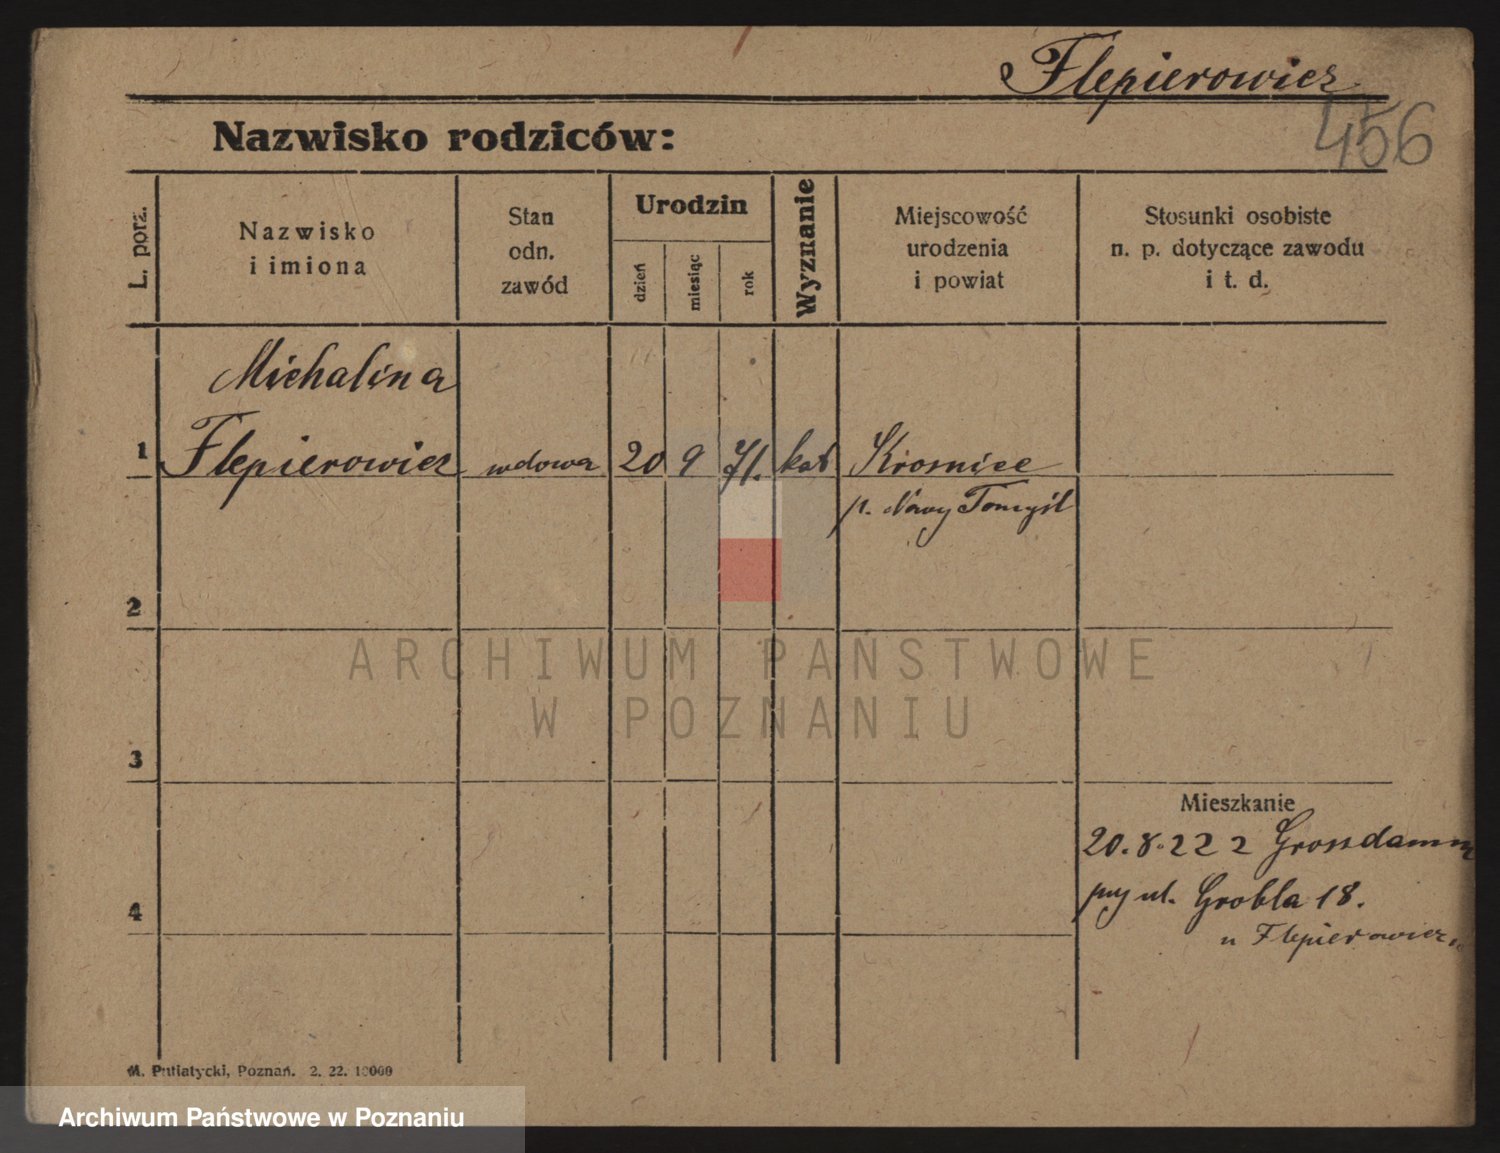 Flepierowicz
456
Nazwisko rodziców:
L. porz.
Nazwisko
i imiona
Stan
odn.
zawód
Urodzin
dzień
miesiąc
rok
Wyznanie
Miejscowość
urodzenia
i powiat
Stosunki osobiste
n. p. dotyczące zawodu
i t. d.
Michalina
1 Flepierowicz wdowa 20 9 71. kat Krosnice
p. Nowy Tomyśl
2
ARCHIWUM PAŃSTWOWE
W POZNANIU
3
Mieszkanie
20.8.22 z Grossdamm
4 przy ul. Grobla 18.
u Flepierowicza
M. Putiatycki, Poznań. 2. 22. 10000
Archiwum Państwowe w Poznaniu